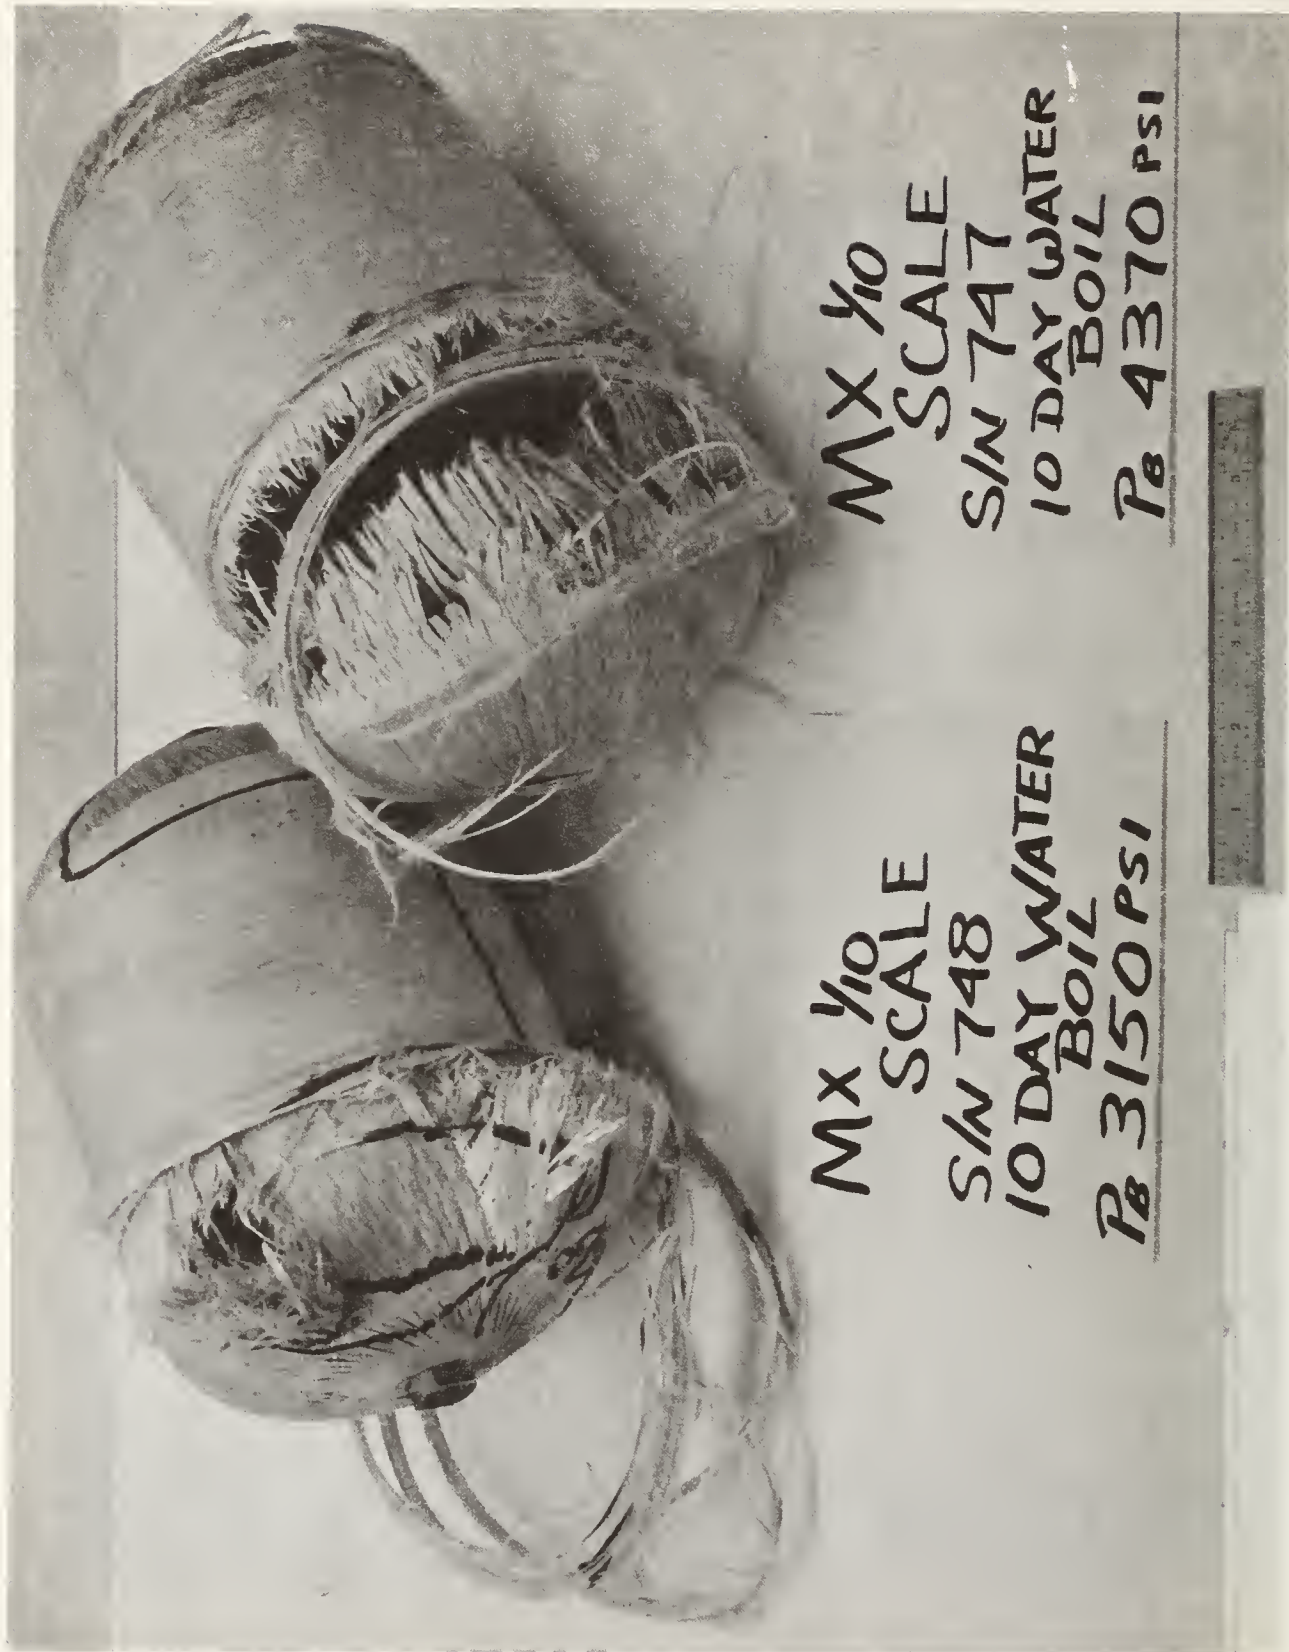 MX 1/10
SCALE
S/N 748
10 DAY WATER
BOIL
PB 3150 PSI
MX 1/10
SCALE
S/N 747
10 DAY WATER
BOIL
PB 4370 PSI